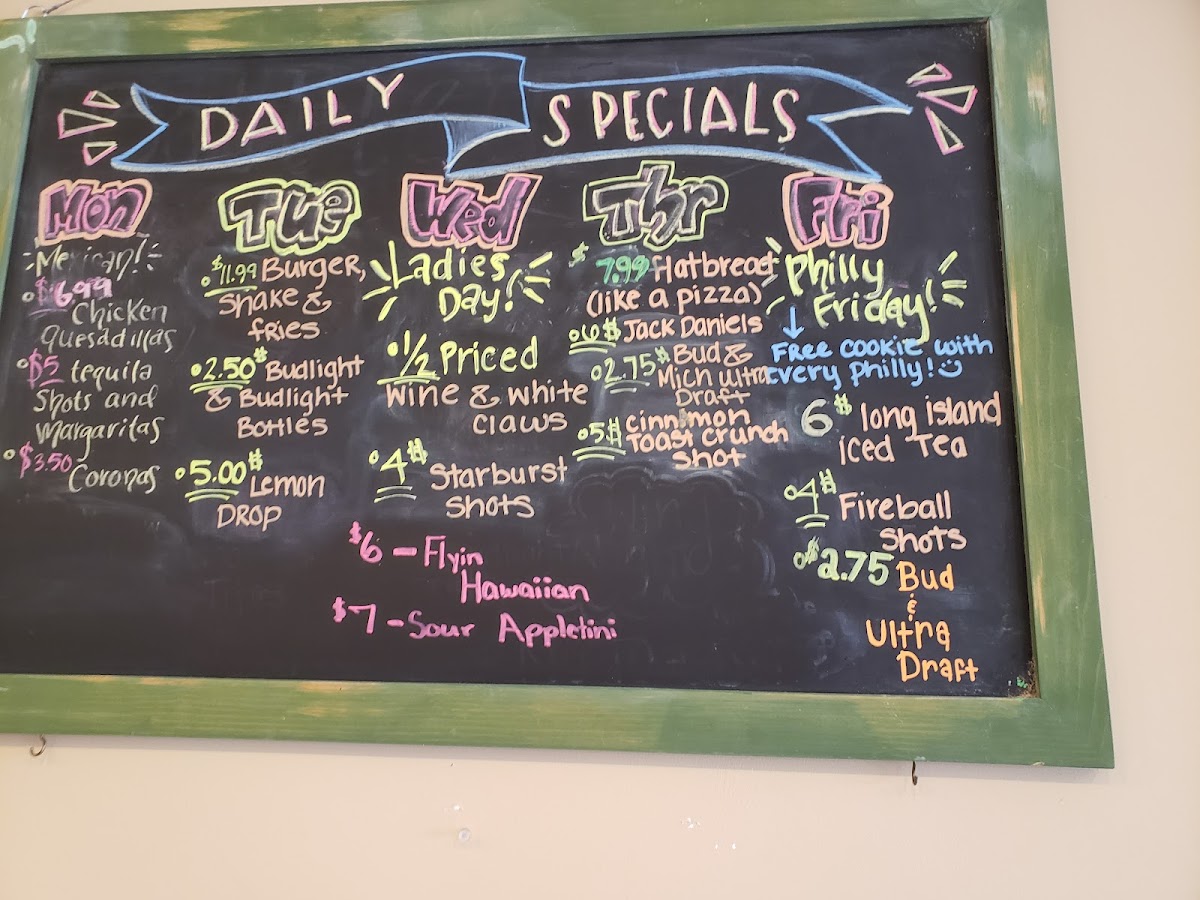 DAILY SPECIALS
Mon
Mexican!
$6.99
Chicken
Quesadillas
$5 tequila
Shots and
Margaritas
$3.50
Coronas
Tue
$11.99 Burger,
Shake &
fries
2.50$ Budlight
& Budlight
Bottles
5.00$ Lemon
DROP
Wed
Ladies
Day!
1/2 Priced
Wine & white
claws
4$ Starburst
Shots
$6 - Flyin
Hawaiian
$7 - Sour Appletini
Thr
$7.99 flatbread
(like a pizza)
6$ Jack Daniels
2.75$ Bud &
Mich ultra
Draft
5$ cinnamon
Toast crunch
Shot
Fri
Philly
Friday!
FREE COOKIE with
Every philly!
6$ long island
Iced Tea
4$ Fireball
Shots
$2.75 Bud
&
Ultra
Draft